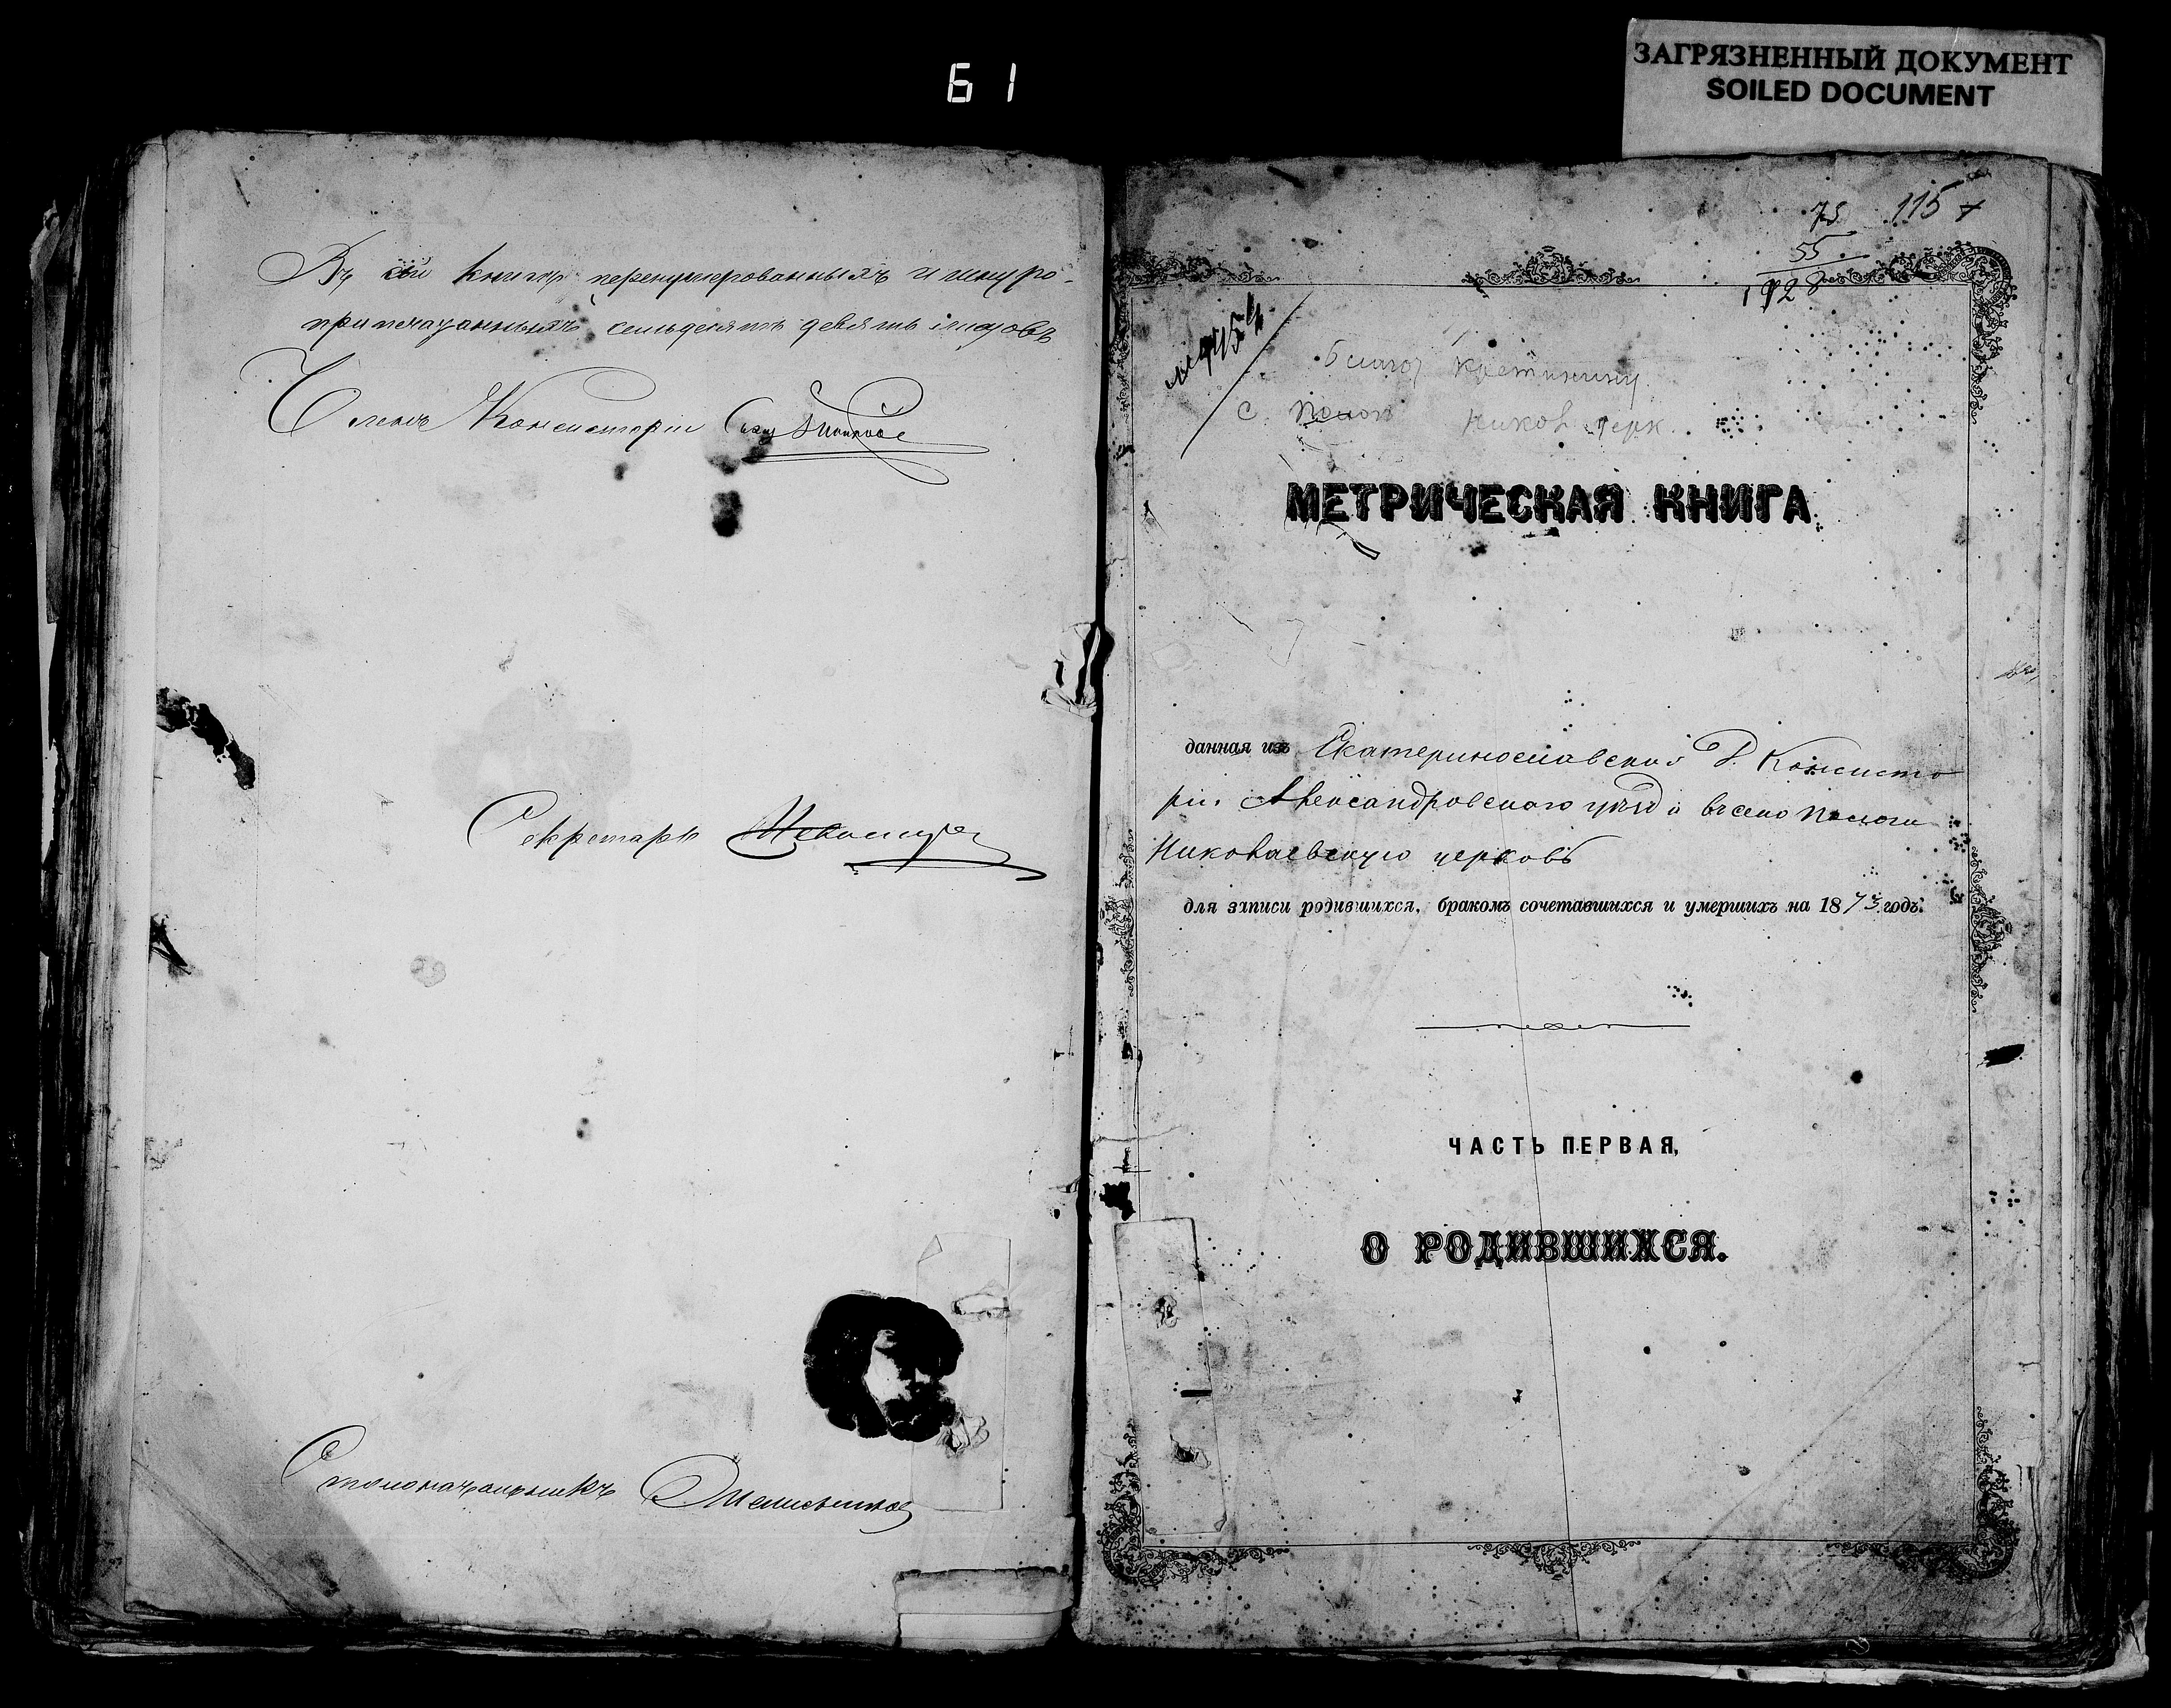 61
ЗАГРЯЗНЕННЫЙ ДОКУМЕНТ
SOILED DOCUMENT
Въ сей книгѣ перенумерованныхъ и шнуро-
припечатанныхъ семьдесятъ девять листовъ
Членъ Консисторіи
Секретарь
Столоначальникъ
75 115
55
128
Благоч
с. Пологи Никол церк.
МЕТРИЧЕСКАЯ КНИГА
данная изъ Екатеринославской Д. Консисто
ріи Александровского уѣзда въ село Пологи
Николаевскую церковь
для записи родившихся, бракомъ сочетавшихся и умершихъ на 1873 годъ.
ЧАСТЬ ПЕРВАЯ,
О РОДИВШИХСЯ.